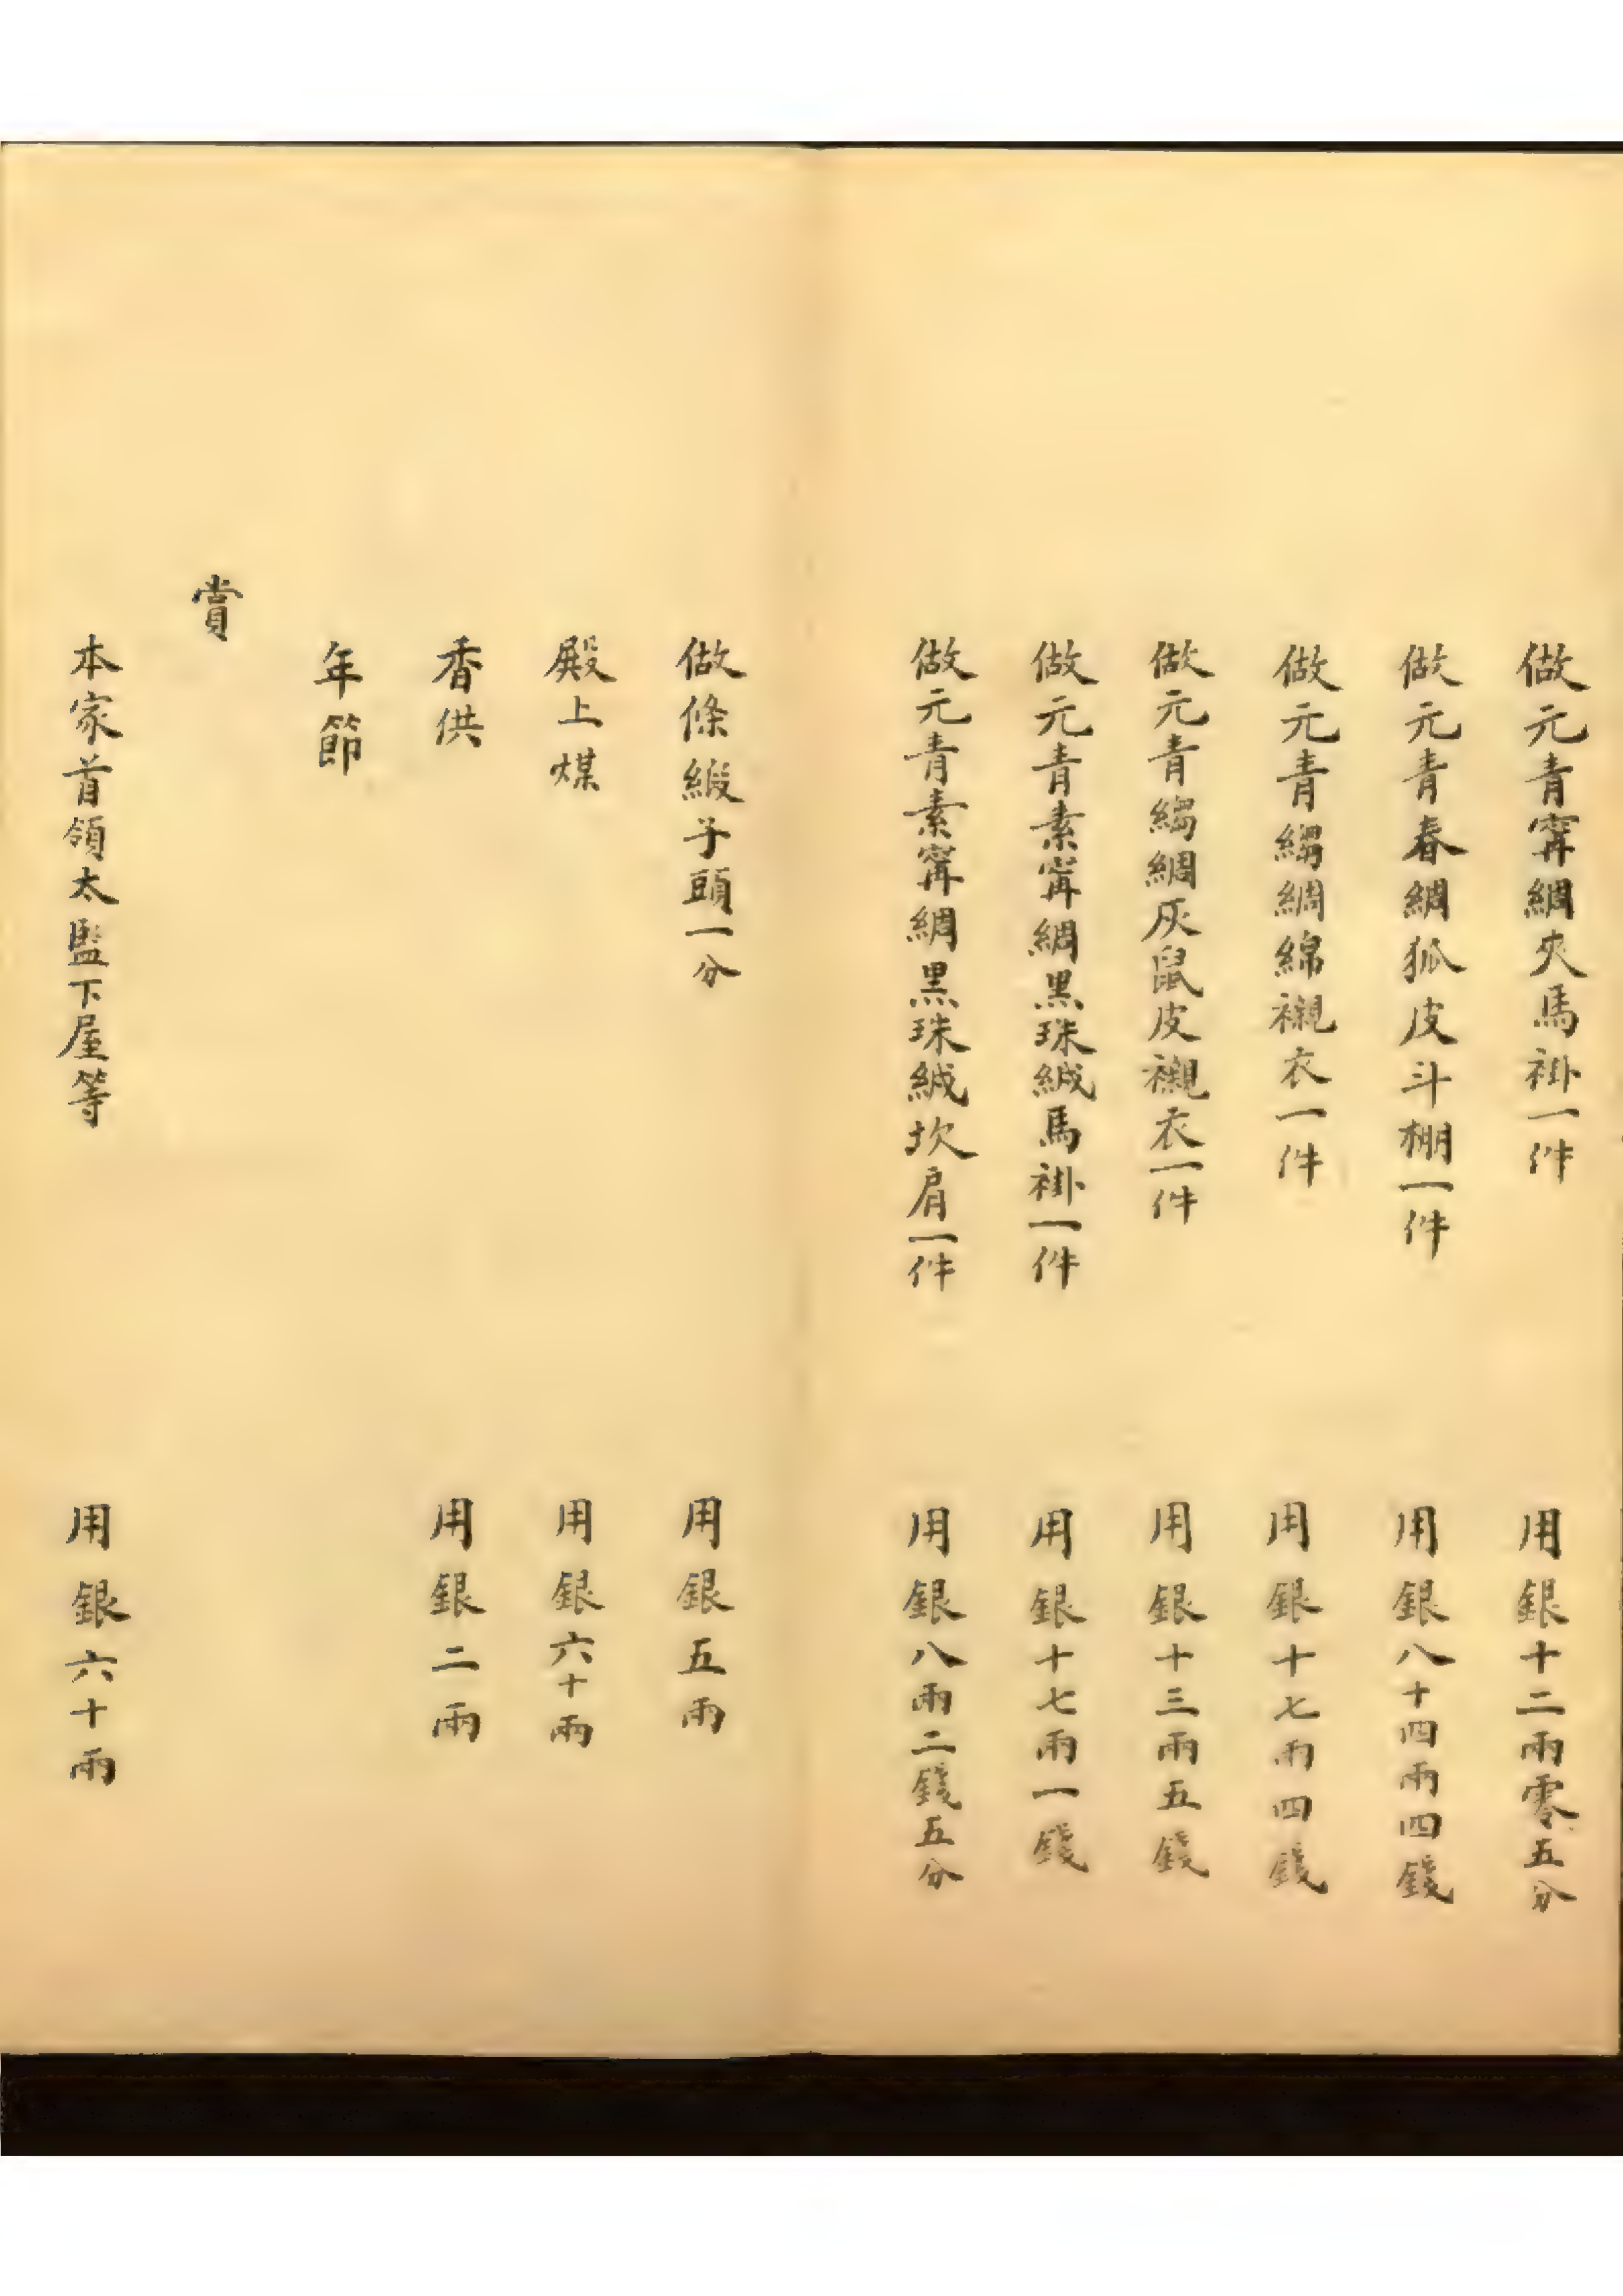 做元青寗綢夾馬褂一件 用銀十二兩零五分
做元青春綢狐皮斗棚一件 用銀八十四兩四錢
做元青縐綢綿襯衣一件 用銀十七兩四錢
做元青縐綢灰鼠皮襯衣一件 用銀十三兩五錢
做元青素寗綢黑珠絨馬褂一件 用銀十七兩一錢
做元青素寗綢黑珠絨坎肩一件 用銀八兩二錢五分
做條緞子頭一分 用銀五兩
殿上煤 用銀六十兩
香供 用銀二兩
年節
賞
本家首領太監下屋等 用銀六十兩